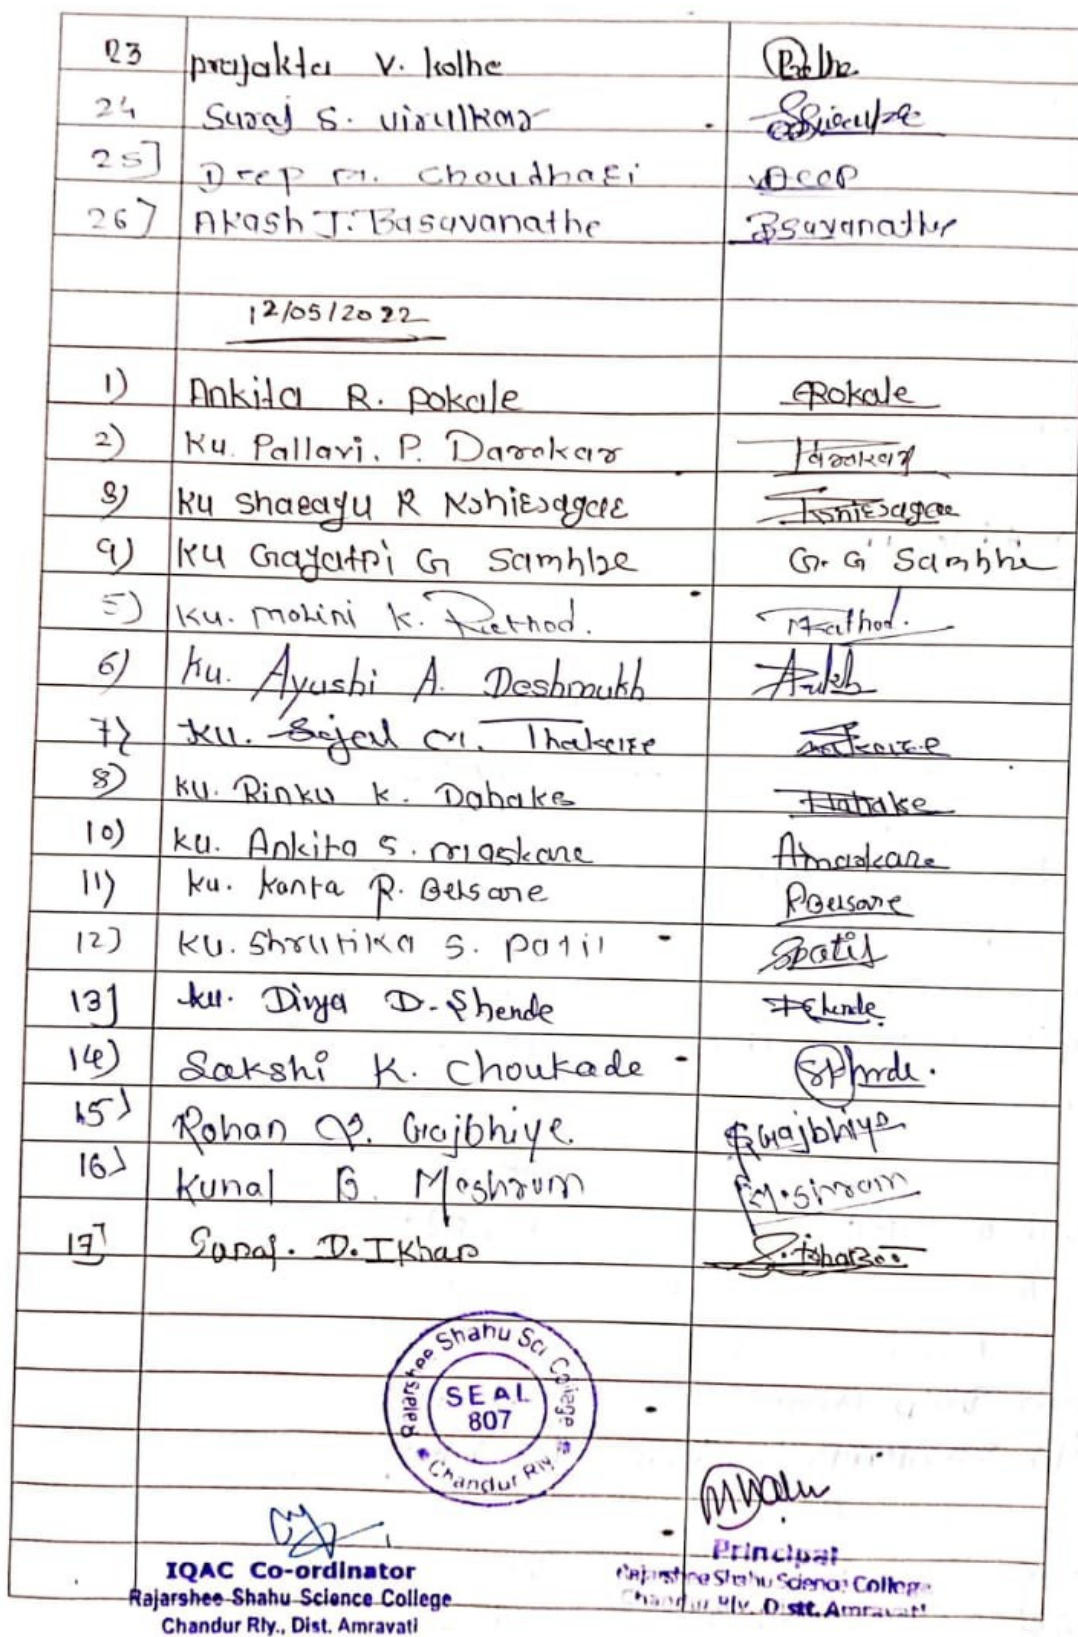 23 prajakta V. kolhe
24 Suraj S. virulkar
25] Deep M. Choudhari Deep
26) Akash J. Basavanathe Bsavanathe
12/05/2022
1) Ankita R. pokale Pokale
2) Ku. Pallavi. P. Darokar Darokar
3) Ku R Kshirsagar Kshirsagar
4) Ku Gayatri G Sambhe G. G Sambhe
5) Ku. mohini K. Rathod. Rathod.
6) Ku. Ayushi A. Deshmukh
7} Ku. Sejal M. Thakare
8) Ku. Rinku K. Dahake Dahake
10) Ku. Ankita S. maskare Amaskare
11) Ku. Kanta R. Belsare RBelsare
12) Ku. Shrutika S. patil Spatil
13] Ku. Divya D. Shende DShende
14) Sakshi K. Choukade
15) Rohan P. Gajbhiye. Gajbhiye
16) Kunal B. Meshram Meshram
17] D. Ikhar
Rajarshee Shahu Sci. College
SEAL
807
* Chandur Rly. *
IQAC Co-ordinator
Rajarshee Shahu Science College
Chandur Rly., Dist. Amravati
Principal
Rajarshee Shahu Science College
Chandur Rly. Distt. Amravati